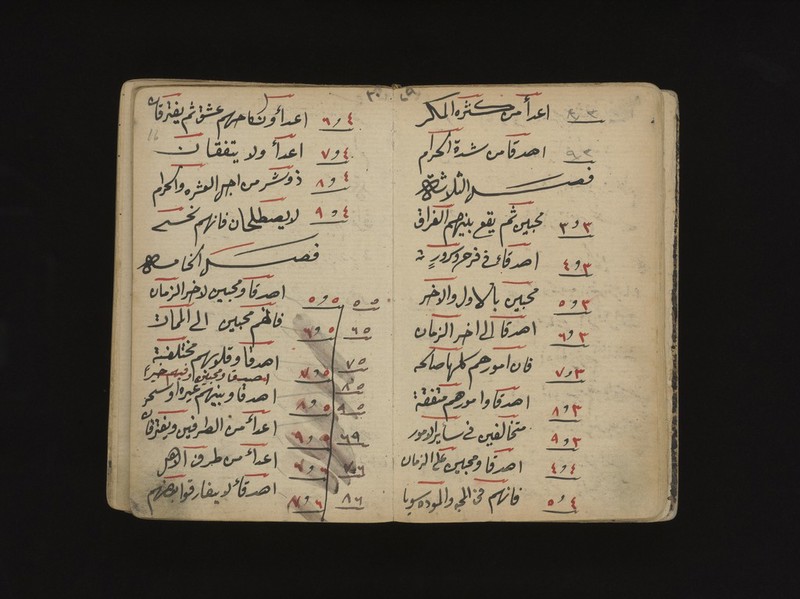 ٢٩
٢ و ٨ اعدأ من كثرة المكر
٢ و ٩ اصدقا من شدة الحرام
فصل الثلاثة
٣ و ٣ محبين ثم يقع بينهم الفراق
٣ و ٤ اصدقاء في فرح وسرور
٣ و ٥ محبين بالاول والاخر
٣ و ٦ اصدقا الى اخر الزمان
٣ و ٧ فان امورهم كلها صالحه
٣ و ٨ اصدقا وامورهم متفقة
٣ و ٩ متخالفين في ساير الامور
٤ و ٤ اصدقا ومحبين على الزمان
٤ و ٥ فانهم في المحبه والموده سويا
٣٠
٤ و ٦ اعدأ ونكاحهم عشق ثم يفترقان
٤ و ٧ اعدأ ولا يتفقان
٤ و ٨ ذو شر من اجل العشره والحرام
٤ و ٩ لا يصطلحان فانهم
فصل الخامسة
٥ ٥ ٥ و ٥ اصدقا ومحبين لاخر الزمان
٦ ٥ ٥ و ٦ فانهم محبين الى الممات
٧ ٥ ٥ و ٧ اصدقا وقلوبهم مختلفة
٨ ٥ اصدقا ومحبين
٩ ٥ ٥ و ٨ اصدقا وبينهم غيره او سحر
٦ ٩ ٥ و ٩ اعدأ من الطرفين ويفترقان
٦ ٦ و ٦ اعدأ من طرف الاهل
٨ ٦ ٦ و ٧ اصدقاء لا يفارقوا بعضهم